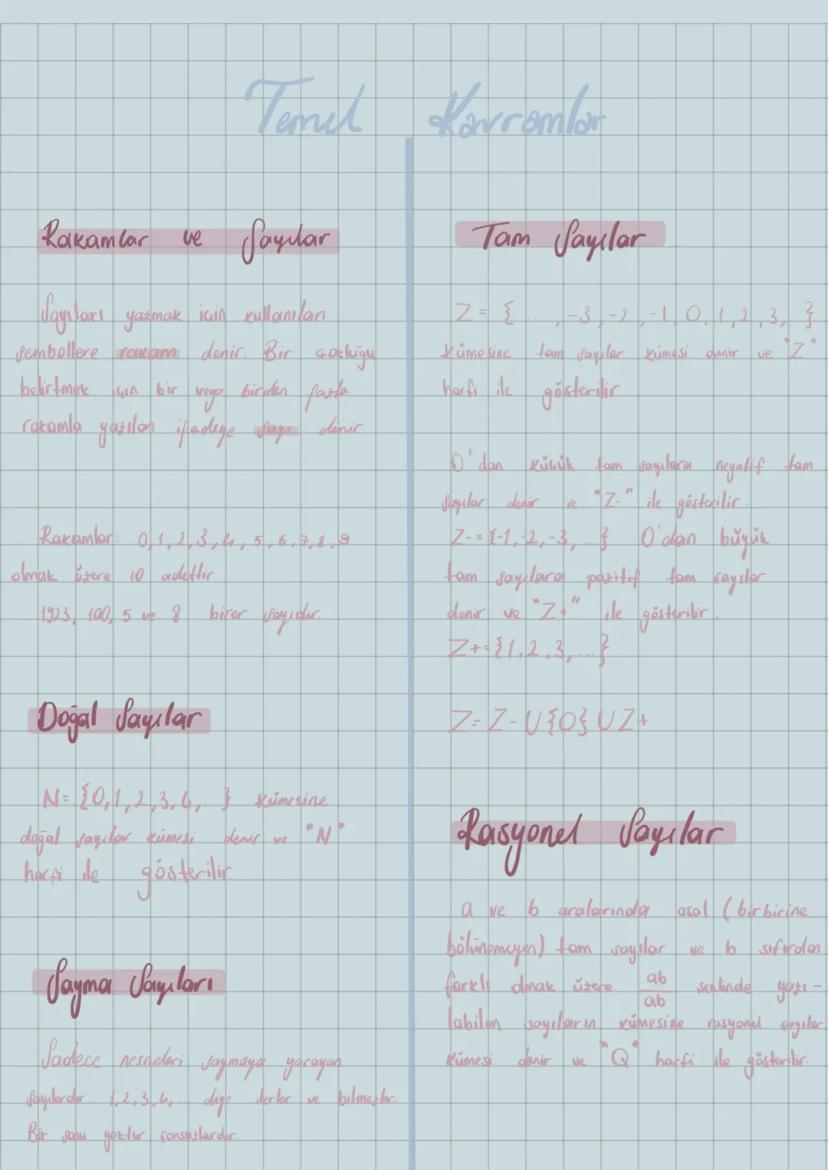 Temel Kavramlar
Rakamlar ve Sayılar
Sayıları yazmak için kullanılan
sembollere rakam denir. Bir çokluğu
belirtmek için bir veya birden fazla
rakamla yazılan ifadeye sayı denir
Rakamlar: 0,1,2,3,4,5,6,7,8,9
olmak üzere 10 adettir
1923, 100, 5 ve 8 birer sayıdır.
Doğal Sayılar
N= {0,1,2,3,4,...} kümesine
doğal sayılar kümesi denir ve "N"
harfi ile gösterilir
Sayma Sayıları
Sadece nesneleri saymaya yarayan
sayılardır. 1,2,3,4,... diye ilerler ve bitmezler.
Bir sonu yoktur sonsuzlardır.
Tam Sayılar
Z= { ..., -3, -2, -1, 0, 1, 2, 3, }
kümesine tam sayılar kümesi denir ve "Z"
harfi ile gösterilir
0'dan küçük tam sayılara negatif tam
sayılar denir ve "Z-" ile gösterilir.
Z-={-1,-2,-3,...} 0'dan büyük
tam sayılara pozitif tam sayılar
denir ve "Z+" ile gösterilir.
Z+={1,2,3,...}
Z= Z- U {0} U Z+
Rasyonel Sayılar
a ve b aralarında asal (birbirine
bölünemeyen) tam sayılar ve b sıfırdan
farklı olmak üzere ab/ab şeklinde yazı-
labilen sayıların kümesine rasyonel sayılar
kümesi denir ve "Q" harfi ile gösterilir.